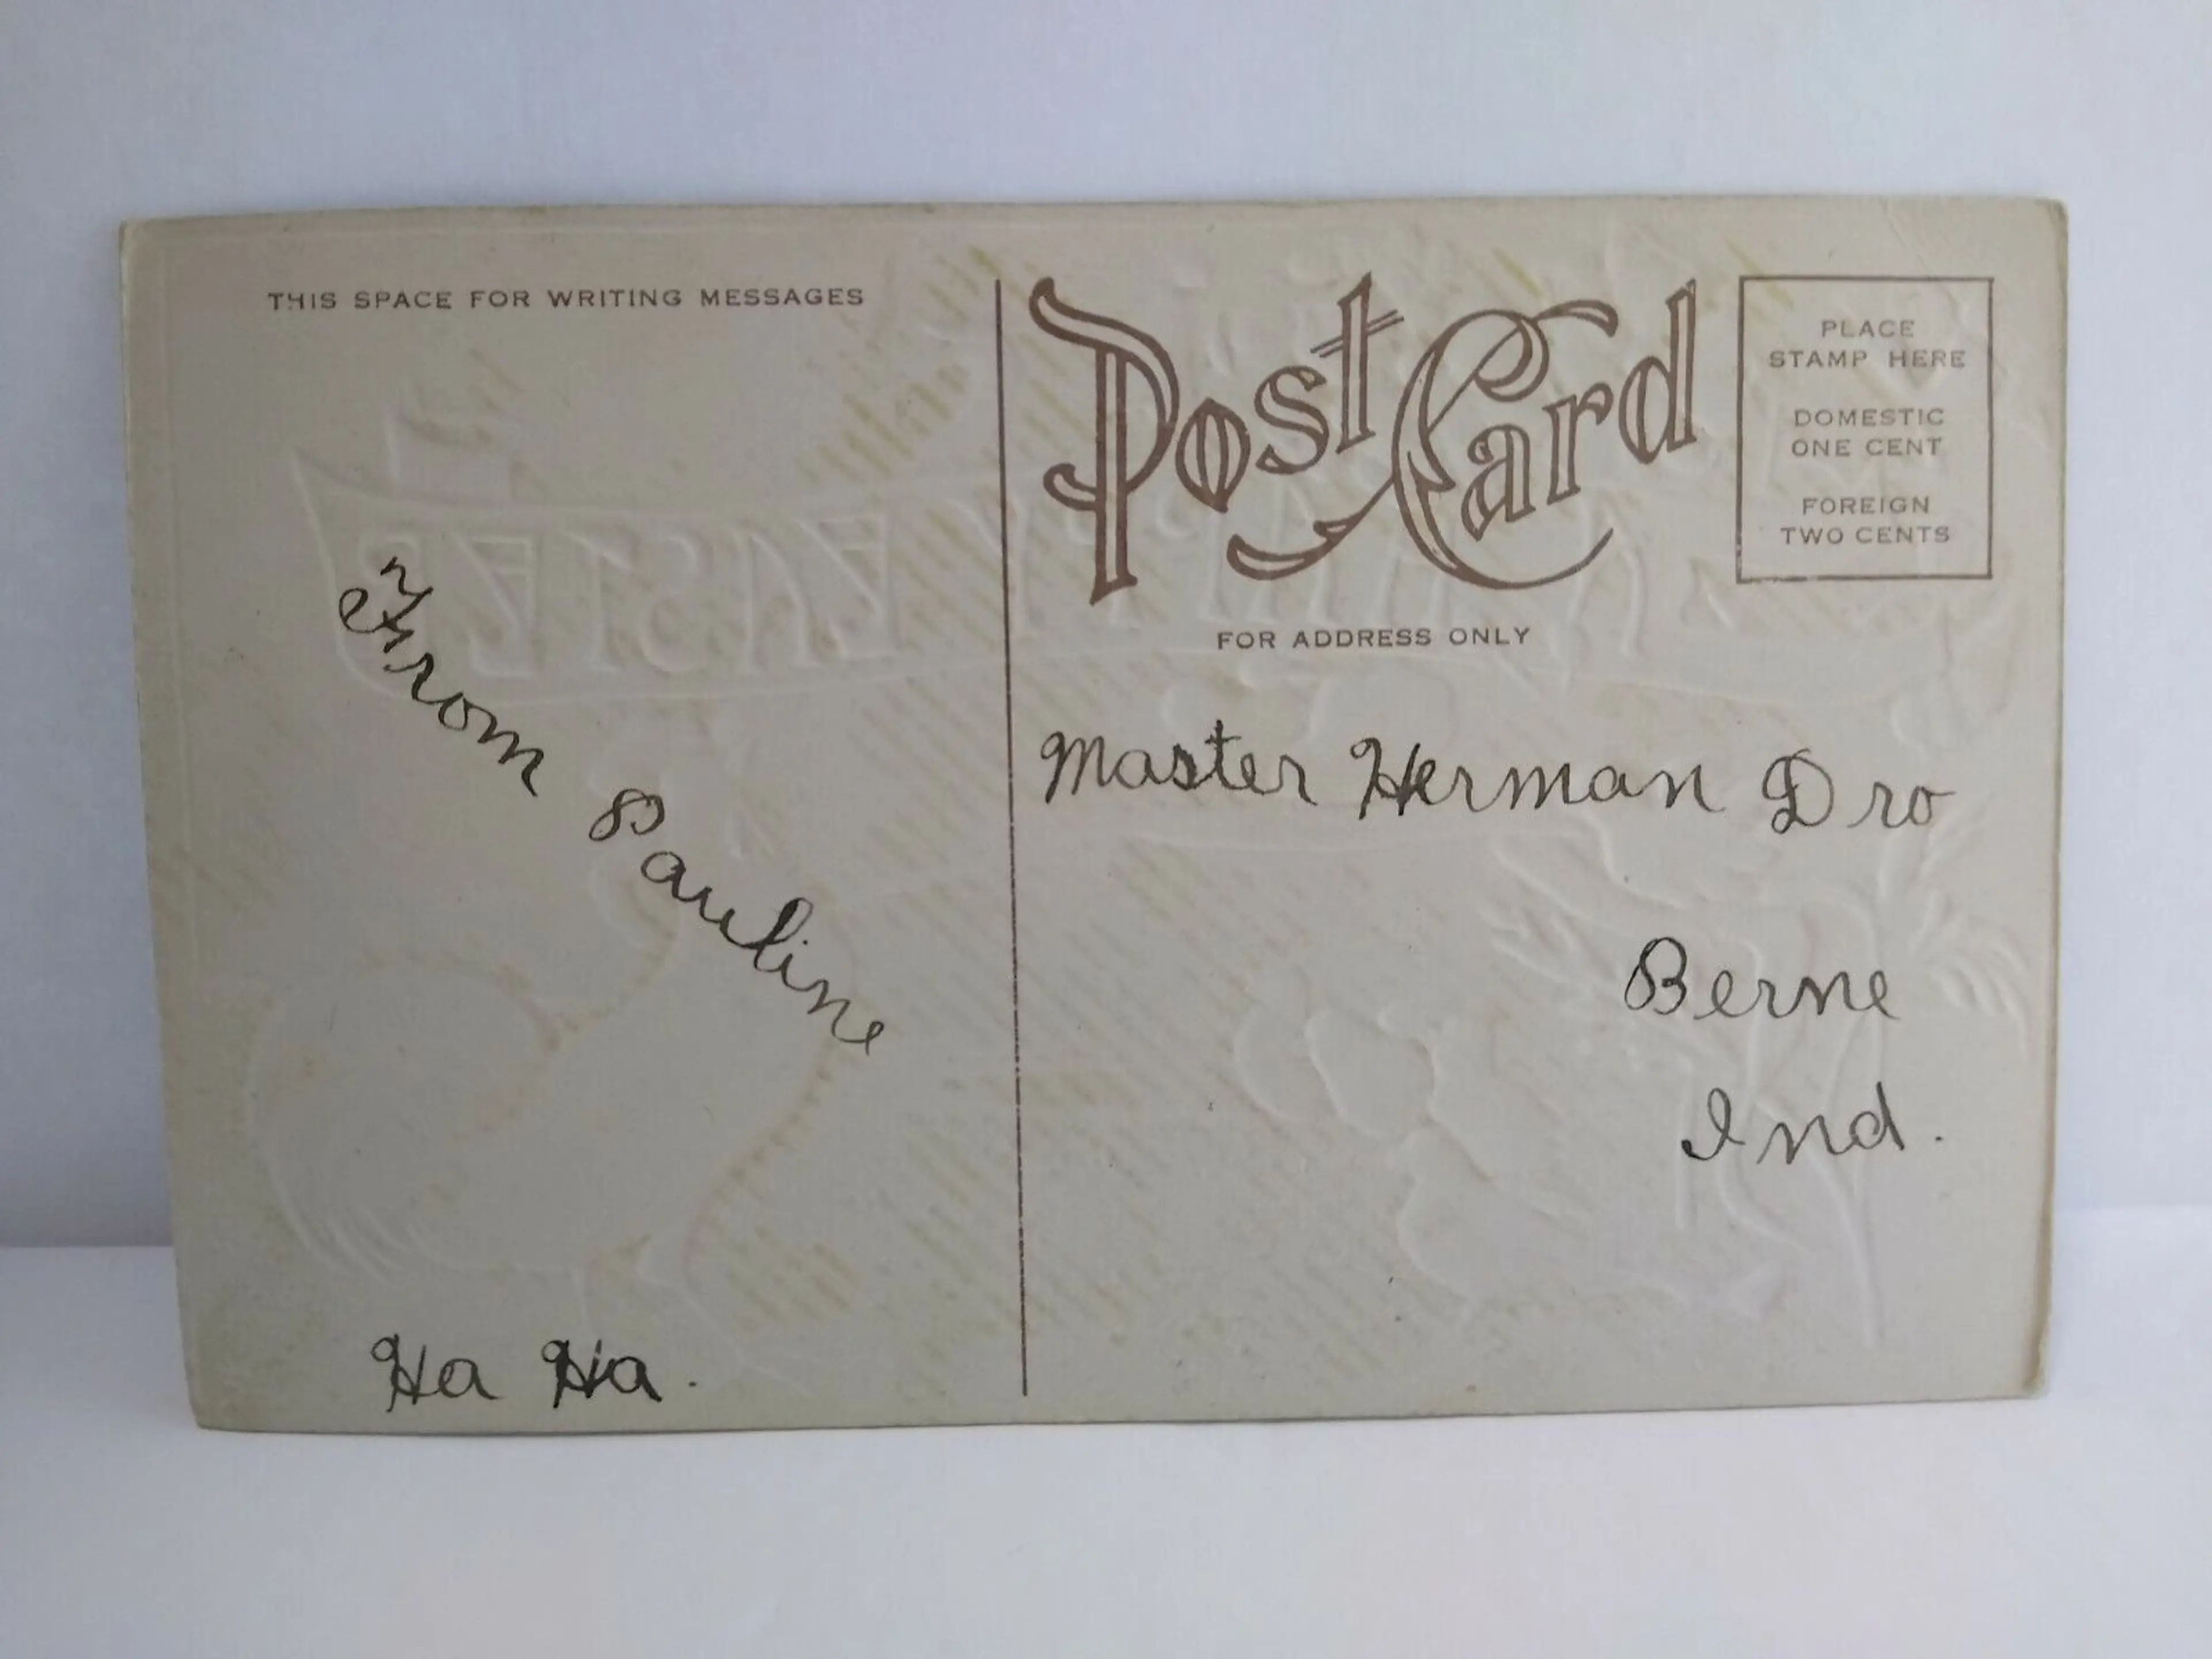 THIS SPACE FOR WRITING MESSAGES
From Pauline
Ha Ha.
Post Card
PLACE
STAMP HERE
DOMESTIC
ONE CENT
FOREIGN
TWO CENTS
FOR ADDRESS ONLY
Master Herman Dro
Berne
Ind.